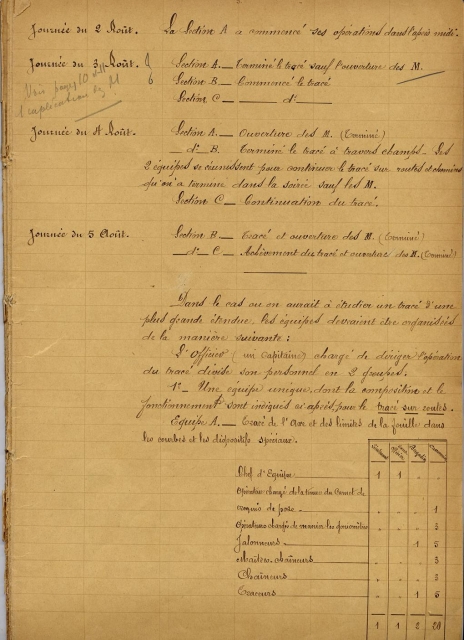 Journée du 2 Août. La Section A a commencé ses opérations dans l'après midi.
Journée du 3 Août. Section A. — Terminé le tracé sauf l'ouverture des M.
Section B — Commencé le tracé
Section C — — d° —
Voir page 10
l'explication des M
Journée du 4 Août. Section A. — Ouverture des M. (Terminé)
— d° B. Terminé le tracé à travers champs — Les
2 équipes se réunissent pour continuer le tracé sur routes et chemins
qu'on a terminé dans la soirée sauf les M.
Section C — Continuation du tracé.
Journée du 5 Août. Section B — Tracé et ouverture des M. (Terminé)
— d° — C — Achèvement du tracé et ouverture des M. (Terminé)
Dans le cas ou on aurait à étudier un tracé d'une
plus grande étendue, les équipes devraient être organisées
de la manière suivante :
L'Officier (un Capitaine) chargé de diriger l'opération
du tracé divise son personnel en 2 groupes.
1° — Une équipe unique, dont la composition et le
fonctionnement sont indiqués ci après, pour le tracé sur routes.
Equipe A. — Tracé de l'Axe et des limites de la fouille dans
les courbes et les dispositifs spéciaux.
Chef d'Equipe 1 1 " "
Opérateur chargé de la tenue du Carnet de
croquis de pose " " " 1
Opérateurs chargés de " " " 3
Jalonneurs " " 1 5
Maîtres-chaîneurs " " " 3
Chaîneurs " " " 3
Traceurs " " 1 5
1 1 2 20